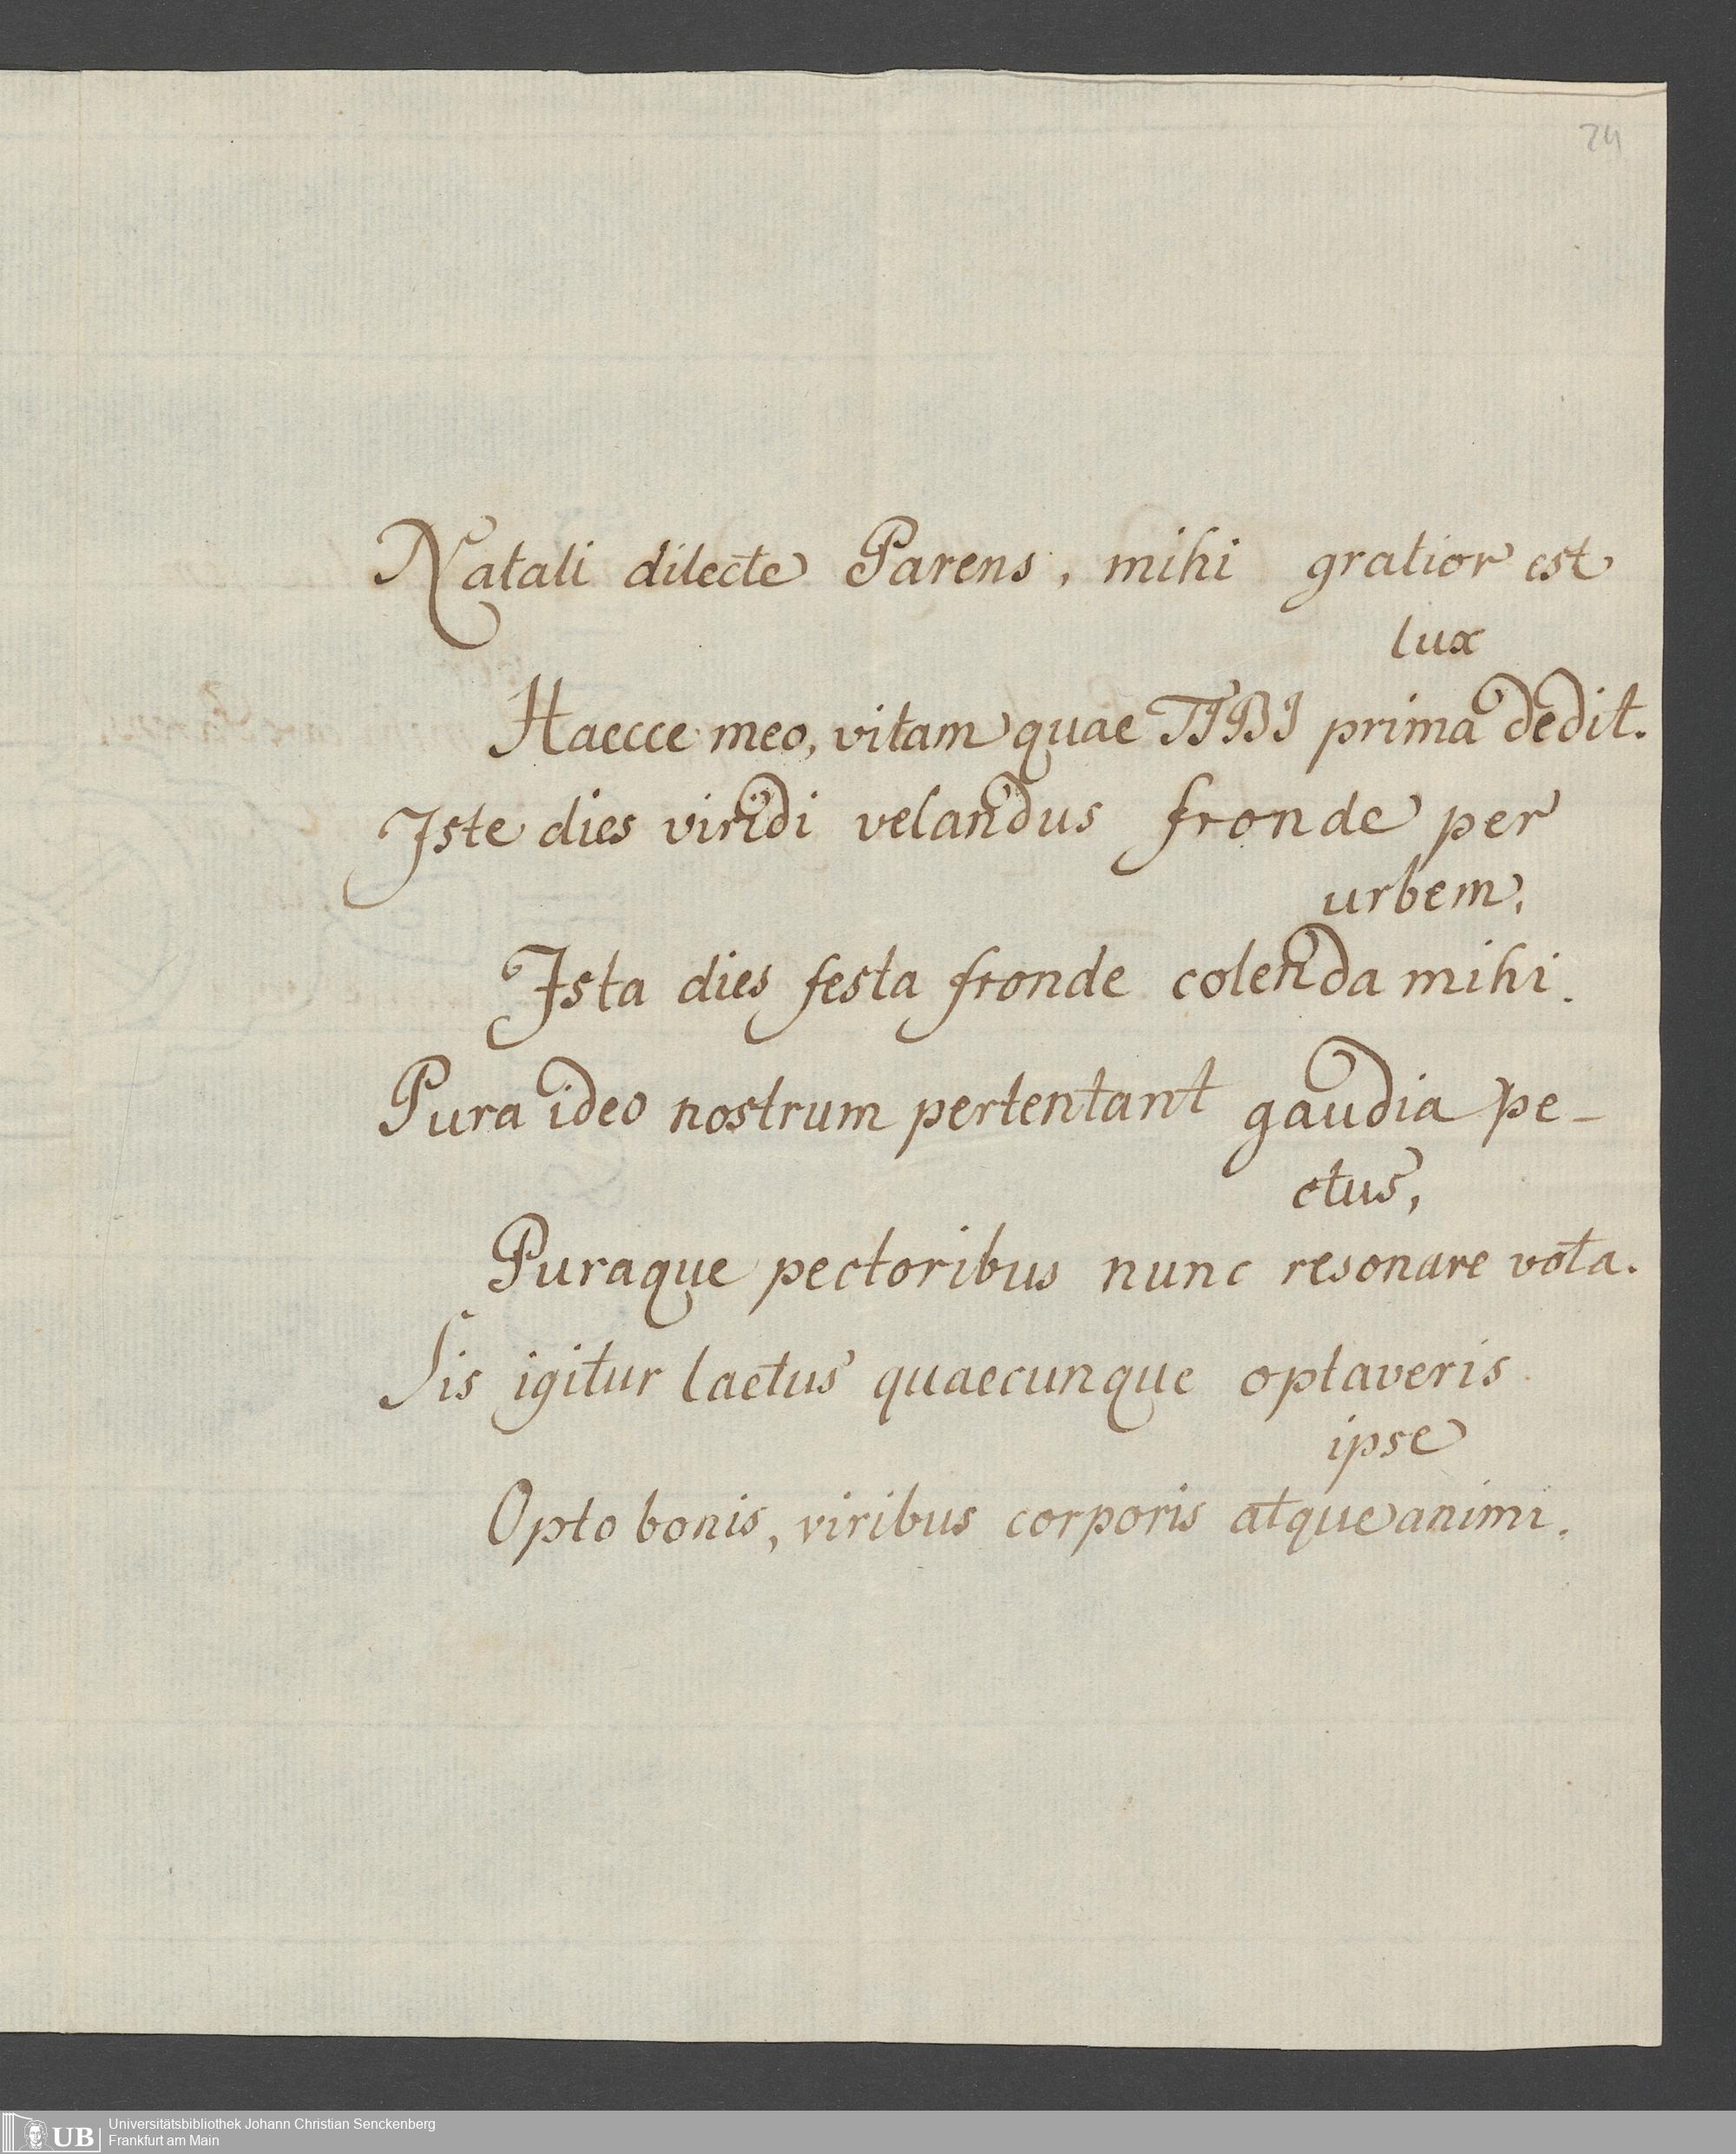 24
Natali dilecte Parens, mihi gratior est
lux
Haecce meo, vitam quae TIBI prima dedit.
Iste dies viridi velandus fronde per
urbem,
Ista dies festa fronde colenda mihi.
Pura ideo nostrum pertentant gaudia pe-
ctus,
Puraque pectoribus nunc resonare vota.
Sis igitur laetus quaecunque optaveris
ipse
Opto bonis, viribus corporis atque animi.
UB
Universitätsbibliothek Johann Christian Senckenberg
Frankfurt am Main